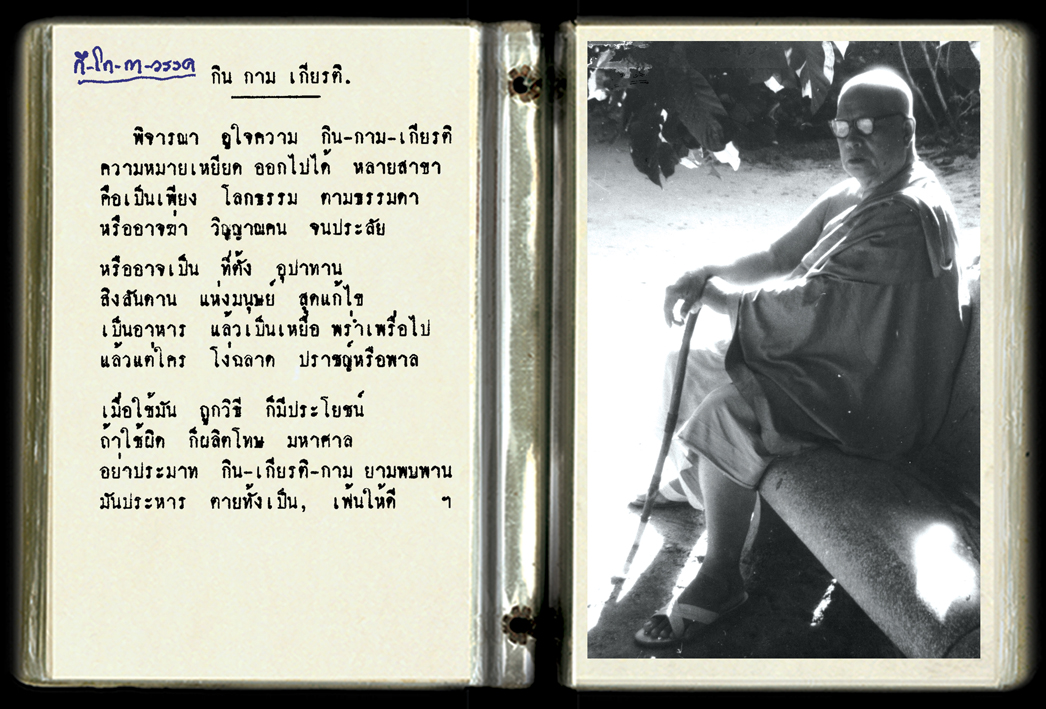 กิ-โก-กา-วรรค
กิน กาม เกียรติ.
พิจารณา ดูใจความ กิน-กาม-เกียรติ
ความหมายเหยียด ออกไปได้ หลายสาขา
คือเป็นเพียง โลกธรรม ตามธรรมดา
หรืออาจฆ่า วิญญาณตน จนประลัย
หรืออาจเป็น ที่ตั้ง อุปาทาน
สิงสันดาน แห่งมนุษย์ สุดแก้ไข
เป็นอาหาร แล้วเป็นเหยื่อ พร่ำเพรื่อไป
แล้วแต่ใคร โง่ฉลาด ปราชญ์หรือพาล
เมื่อใช้มัน ถูกวิธี ก็มีประโยชน์
ถ้าใช้ผิด ก็ผลิตโทษ มหาศาล
อย่าประมาท กิน-เกียรติ-กาม ยามพบพาน
มันประหาร ตายทั้งเป็น, เฟ้นให้ดี ฯ